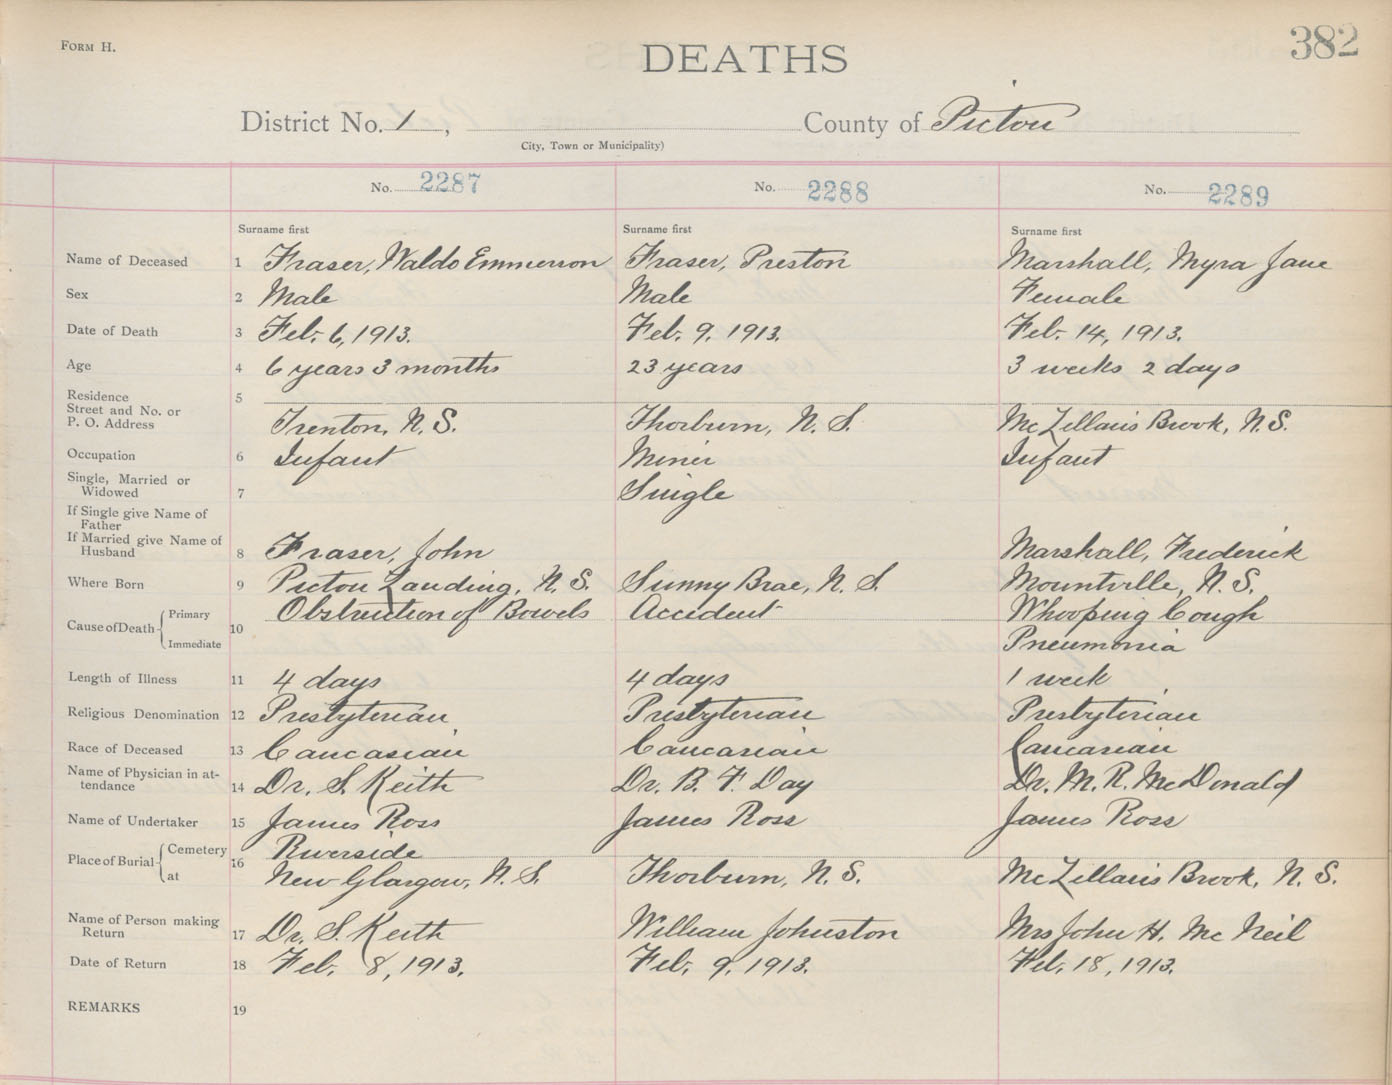 FORM H.
382
DEATHS
District No. 1, County of Pictou
City, Town or Municipality)
No. 2287 No. 2288 No. 2289
Surname first Surname first Surname first
Name of Deceased 1 Fraser, Waldo Emmerson Fraser, Preston Marshall, Myra Jane
Sex 2 Male Male Female
Date of Death 3 Feb. 6, 1913. Feb. 9. 1913. Feb. 14, 1913.
Age 4 6 years 3 months 23 years 3 weeks 2 days
Residence 5
Street and No. or
P. O. Address Trenton, N. S. Thorburn, N. S. McLellan's Brook, N. S.
Occupation 6 Infant Miner Infant
Single, Married or
Widowed 7 Single
If Single give Name of
Father
If Married give Name of
Husband 8 Fraser, John Marshall, Frederick
Where Born 9 Pictou Landing, N. S. Sunny Brae, N. S. Mountville, N. S.
Cause of Death Primary 10 Obstruction of Bowels Accident Whooping Cough
Immediate Pneumonia
Length of Illness 11 4 days 4 days 1 week
Religious Denomination 12 Presbyterian Presbyterian Presbyterian
Race of Deceased 13 Caucasian Caucasian Caucasian
Name of Physician in at-
tendance 14 Dr. S. Keith Dr. B. F. Day Dr. M. R. McDonald
Name of Undertaker 15 James Ross James Ross James Ross
Place of Burial Cemetery 16 Riverside
at New Glasgow, N. S. Thorburn, N. S. McLellan's Brook, N. S.
Name of Person making
Return 17 Dr. S. Keith William Johnston Mrs John H. McNeil
Date of Return 18 Feb. 8, 1913. Feb. 9, 1913. Feb. 18, 1913.
REMARKS 19